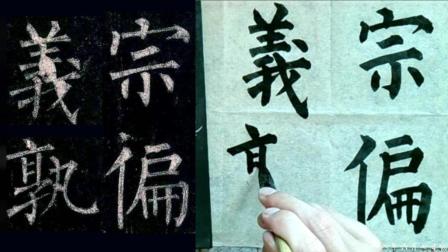 宗偏
義孰
宗偏
義